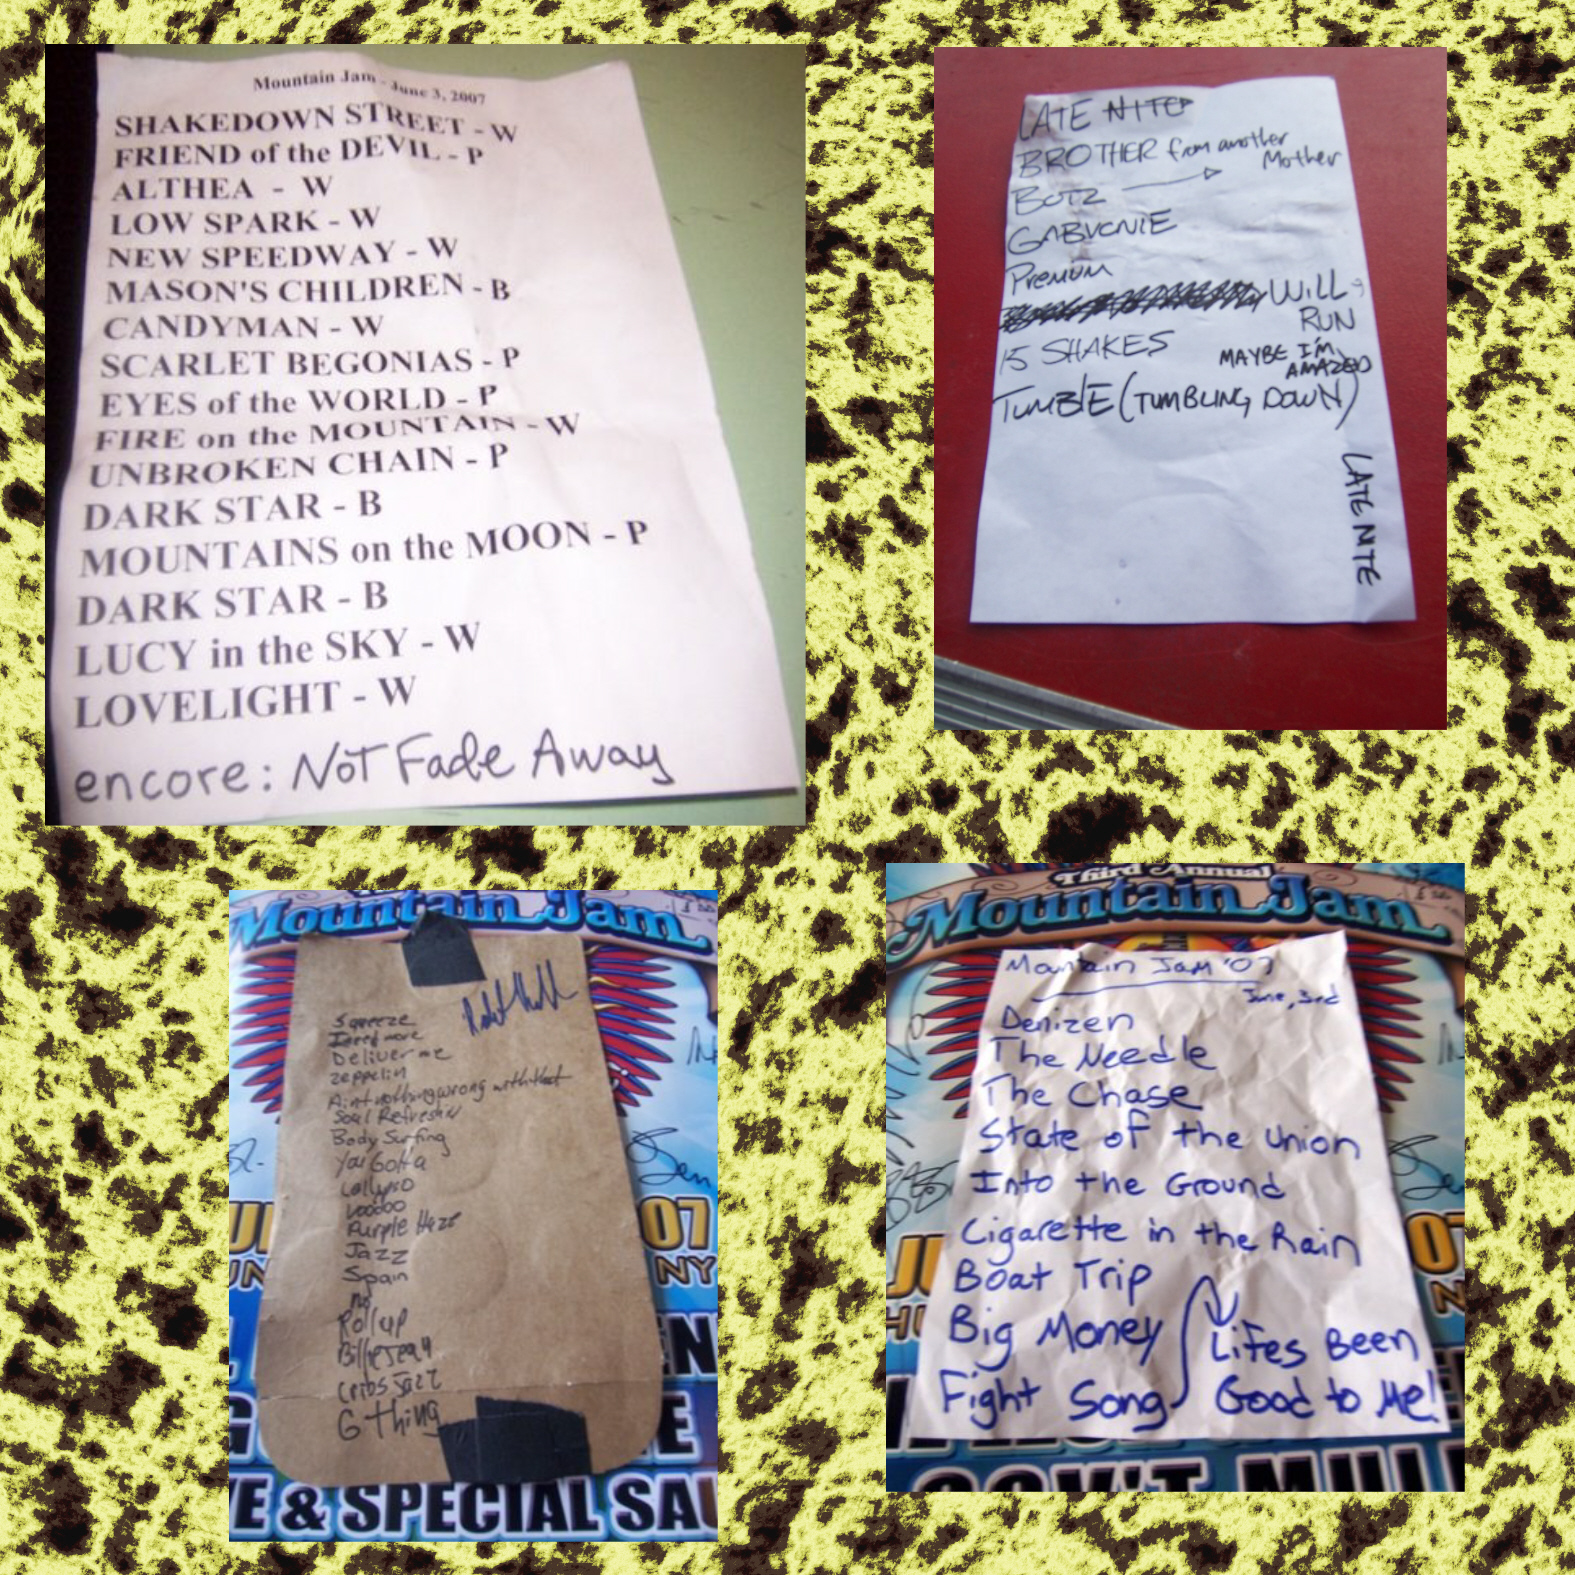 Mountain Jam - June 3, 2007
SHAKEDOWN STREET - W
FRIEND of the DEVIL - P
ALTHEA - W
LOW SPARK - W
NEW SPEEDWAY - W
MASON'S CHILDREN - B
CANDYMAN - W
SCARLET BEGONIAS - P
EYES of the WORLD - P
FIRE on the MOUNTAIN - W
UNBROKEN CHAIN - P
DARK STAR - B
MOUNTAINS on the MOON - P
DARK STAR - B
LUCY in the SKY - W
LOVELIGHT - W
encore: NOT Fade Away
LATE NITE
BROTHER from another
Mother
BOTZ
Premum
WILL
RUN
15 SHAKES
MAYBE I'M
AMAZED
TUMBLE (TUMBLING DOWN)
LATE NITE
Mountain Jam
Squeeze
I need more
Deliver me
Zeppelin
Aint nothing wrong with that
Soul Refresher
Body Surfing
You Gotta
Calypso
Voodoo
Purple Haze
Jazz
Spain
no
Roll up
Billie Jean
Cribs Jazz
G thing
07
NY
E & SPECIAL SA
Third Annual
Mountain Jam
Mountain Jam '07
June, 3rd
Denizen
The Needle
The Chase
State of the Union
Into the Ground
Cigarette in the Rain
Boat Trip
Big Money
Lifes Been
Fight Song
Good to Me!
07
GOV'T MUL